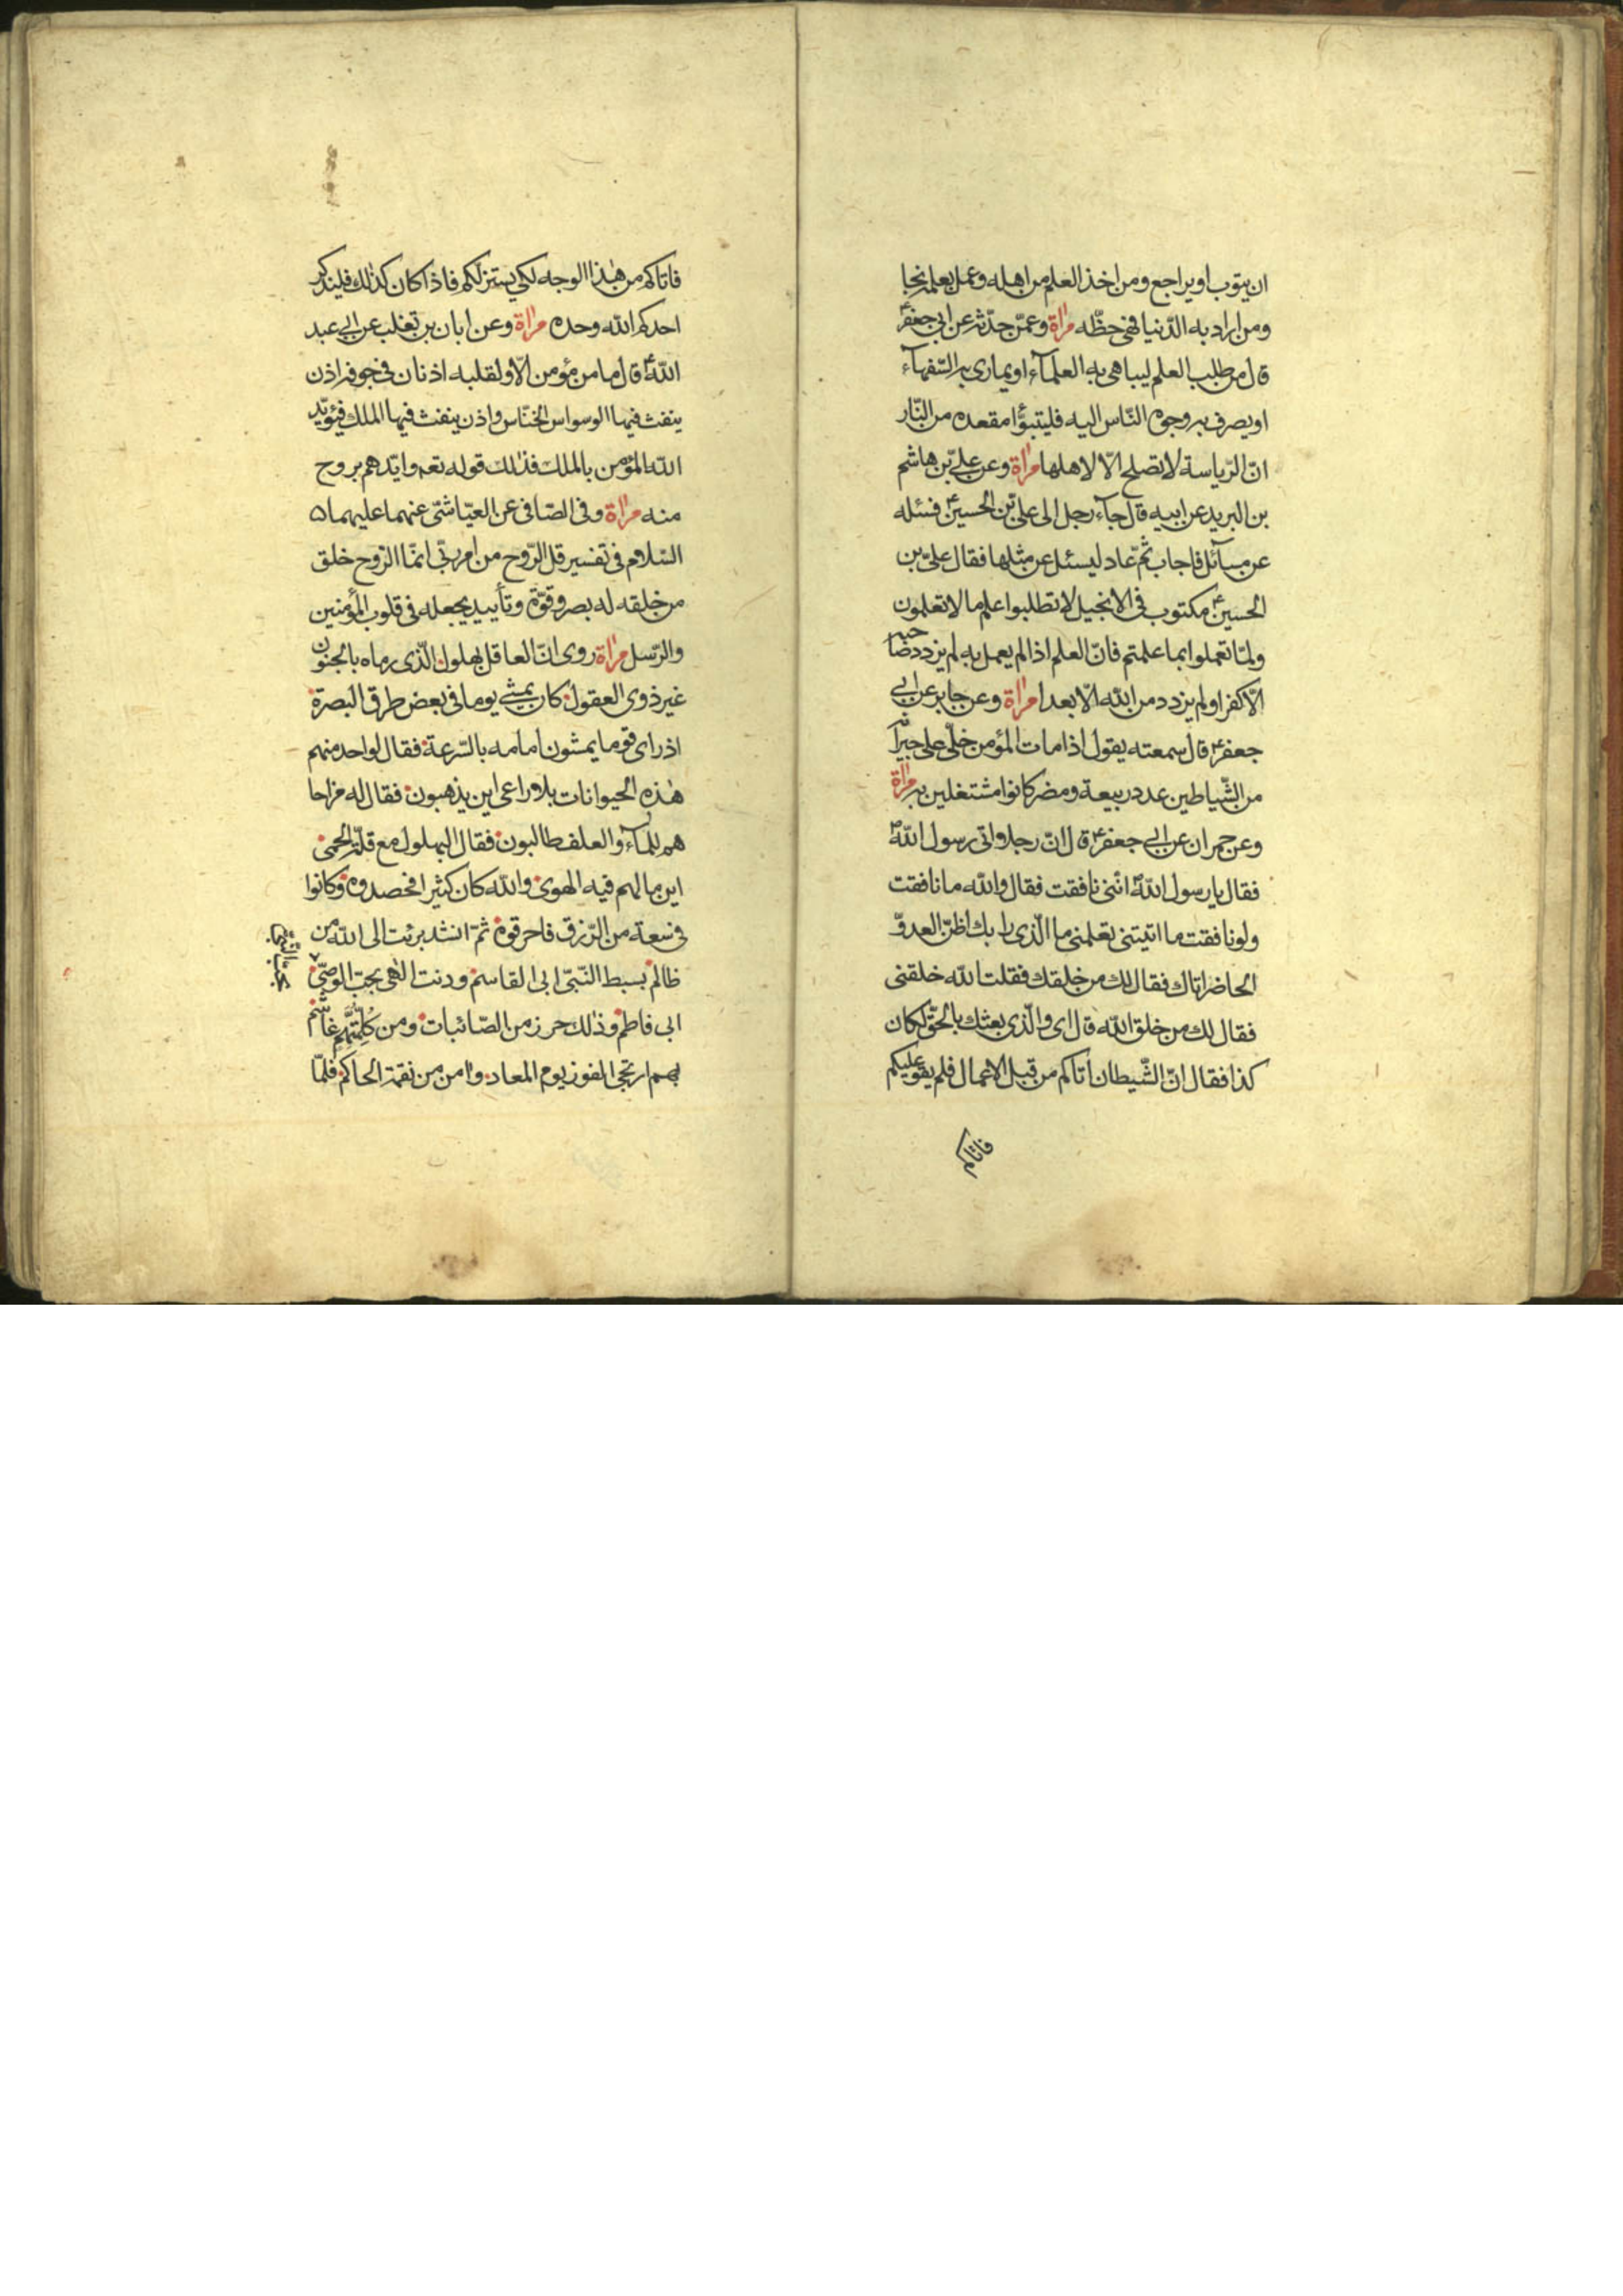 ان يتوب او يراجع ومن اخذ العلم من اهله وعمل بعلمه نجا
ومن اراد به الدّنيا فهى حظّه مرٰاة وعمّن حدّثه عن ابى جعفرؑ
قال من طلب العلم ليباهى به العلمآء او يمارى به السّفهآء
او يصرف به وجوه النّاس اليه فليتبوّأ مقعده من النّار
انّ الرّياسة لا تصلح الّا لاهلها مرٰاة وعن علىّ بن هاشم
بن البريد عن ابيه قال جآء رجل الى علىّ بن الحسينؑ فسئله
عن مسآئل فاجاب ثمّ عاد ليسئل عن مثلها فقال علىّ بن
الحسينؑ مكتوب فى الانجيل لا تطلبوا علم ما لا تعلمون
ولمّا تعملوا بما علمتم فانّ العلم اذا لم يعمل به لم يزدد صاحبه
الّا كفرا ولم يزدد من الله الّا بعدا مرٰاة وعن جابر عن ابى
جعفرؑ قال سمعته يقول اذا مات المؤمن خلّى على جيرانه
من الشّياطين عدد ربيعة ومضر كانوا مشتغلين به مرٰاة
وعن حمران عن ابى جعفرؑ قال انّ رجلا اتى رسول اللهؐ
فقال يا رسول اللهؐ انّنى نافقت فقال والله ما نافقت
ولو نافقت ما اتيتنى تعلمنى ما الّذى رابك اظنّ العدوّ
الحاضر اتاك فقال لك من خلقك فقلت الله خلقنى
فقال لك من خلق الله قال اى والّذى بعثك بالحقّ لكان
كذا فقال انّ الشّيطان اتاكم من قبل الاعمال فلم يقو عليكم
فاتاكم
فاتاكم من هٰذا الوجه لكى يستزلّكم فاذا كان كذٰلك فليذكر
احدكم الله وحده مرٰاة وعن ابان بن تغلب عن ابى عبد
اللهؑ قال ما من مؤمن الّا ولقلبه اذنان فى جوفه اذن
ينفث فيها الوسواس الخنّاس واذن ينفث فيها الملك فيؤيّد
الله المؤمن بالملك فذٰلك قوله تعه وايّدهم بروح
منه مرٰاة وفى الصّافى عن العيّاشىّ عنهما عليهما
السّلام فى تفسير قل الرّوح من امر ربّى انّما الرّوح خلق
من خلقه له بصر وقوّة وتأييد يجعله فى قلوب المؤمنين
والرّسل مرٰاة روى انّ العاقل بهلول الّذى رماه بالجنون
غير ذوى العقول كان يمشى يوما فى بعض طرق البصرة
اذ راى قوما يمشون امامه بالسّرعة فقال لواحد منهم
هٰذه الحيوانات بلا راعى اين يذهبون فقال له مزاحا
هم للمآء والعلف طالبون فقال البهلول مع قلّة الحمى
اين ما لهم فيه الهوى والله كان كثيرا فحصدوه وكانوا
فى سعة من الرّزق فاحرقوه ثمّ انشد برئت الى الله من
ظالم بسبط النّبىّ ابى القاسم ودنت الٰهى بحبّ الوصىّ
ابى فاطم وذلك حرز من الصّائبات ومن كلّ متّهم غاشم
بهم ارتجى الفوز يوم المعاد وامن من نقمة الحاكم فلمّا